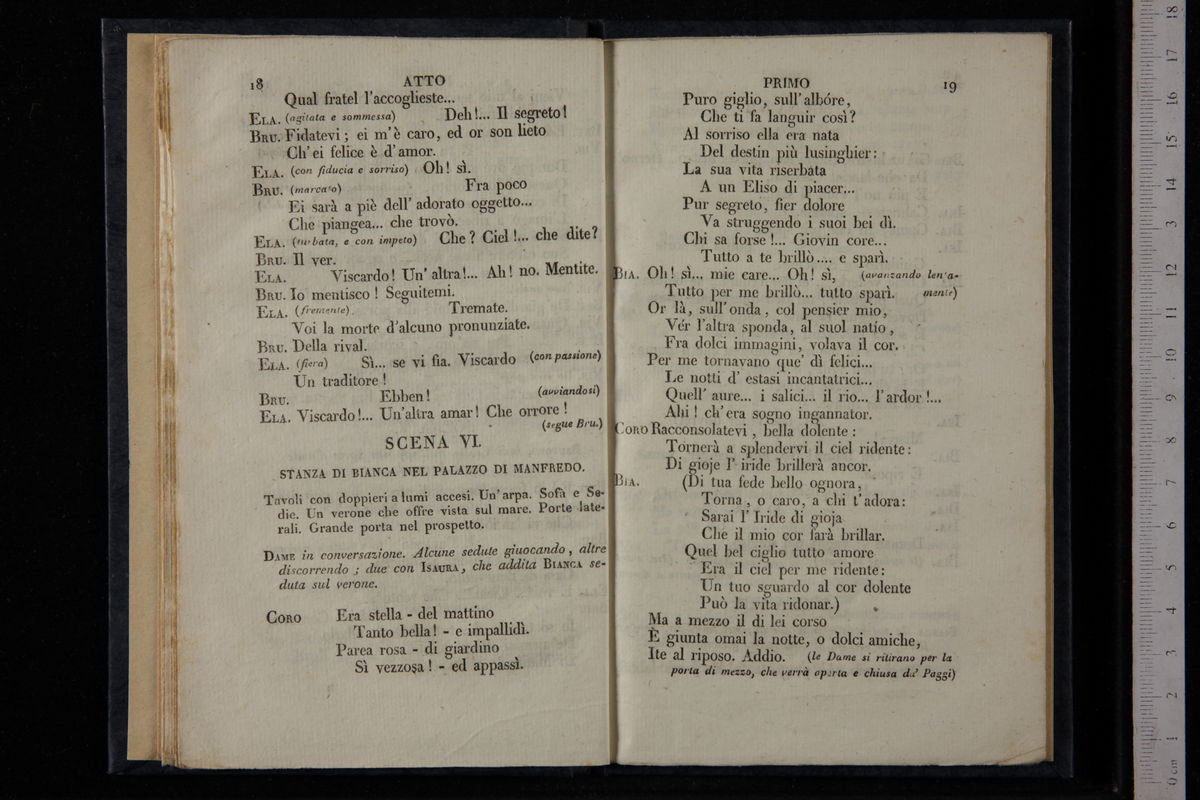 18 ATTO
Qual fratel l'accoglieste...
ELA. (agitata e sommessa) Deh!... Il segreto!
BRU. Fidatevi; ei m'è caro, ed or son lieto
Ch' ei felice è d'amor.
ELA. (con fiducia e sorriso) Oh! sì.
BRU. (marcato) Fra poco
Ei sarà a piè dell' adorato oggetto...
Che piangea... che trovò.
ELA. (turbata, e con impeto) Che? Ciel!... che dite?
BRU. Il ver.
ELA. Viscardo! Un' altra!... Ah! no. Mentite.
BRU. Io mentisco! Seguitemi.
ELA. (fremente). Tremate.
Voi la morte d'alcuno pronunziate.
BRU. Della rival.
ELA. (fiera) Sì... se vi fia. Viscardo (con passione)
Un traditore!
BRU. Ebben! (avviandosi)
ELA. Viscardo!... Un'altra amar! Che orrore!
(segue Bru.)
SCENA VI.
STANZA DI BIANCA NEL PALAZZO DI MANFREDO.
Tavoli con doppieri a lumi accesi. Un' arpa. Sofà e Se-
die. Un verone che offre vista sul mare. Porte late-
rali. Grande porta nel prospetto.
DAME in conversazione. Alcune sedute giuocando, altre
discorrendo; due con ISAURA, che addita BIANCA se-
duta sul verone.
CORO Era stella - del mattino
Tanto bella! - e impallidì.
Parea rosa - di giardino
Sì vezzosa! - ed appassì.
PRIMO 19
Puro giglio, sull' albóre,
Che ti fa languir così?
Al sorriso ella era nata
Del destin più lusinghier:
La sua vita riserbata
A un Eliso di piacer...
Pur segreto, fier dolore
Va struggendo i suoi bei dì.
Chi sa forse!... Giovin core...
Tutto a te brillò.... e sparì.
BIA. Oh! sì... mie care... Oh! sì, (avanzando lenta-
Tutto per me brillò... tutto sparì. mente)
Or là, sull' onda, col pensier mio,
Vér l'altra sponda, al suol natío,
Fra dolci immagini, volava il cor.
Per me tornavano que' dì felici...
Le notti d' estasi incantatrici...
Quell' aure... i salici... il rio... l'ardor!...
Ahi! ch' era sogno ingannator.
CORO Racconsolatevi, bella dolente:
Tornerà a splendervi il ciel ridente:
Di gioje l' iride brillerà ancor.
BIA. (Di tua fede bello ognora,
Torna, o caro, a chi t'adora:
Sarai l' Iride di gioja
Che il mio cor farà brillar.
Quel bel ciglio tutto amore
Era il ciel per me ridente:
Un tuo sguardo al cor dolente
Può la vita ridonar.)
Ma a mezzo il di lei corso
È giunta omai la notte, o dolci amiche,
Ite al riposo. Addio. (le Dame si ritirano per la
porta di mezzo, che verrà aperta e chiusa da' Paggi)
0 cm 1 2 3 4 5 6 7 8 9 10 11 12 13 14 15 16 17 18